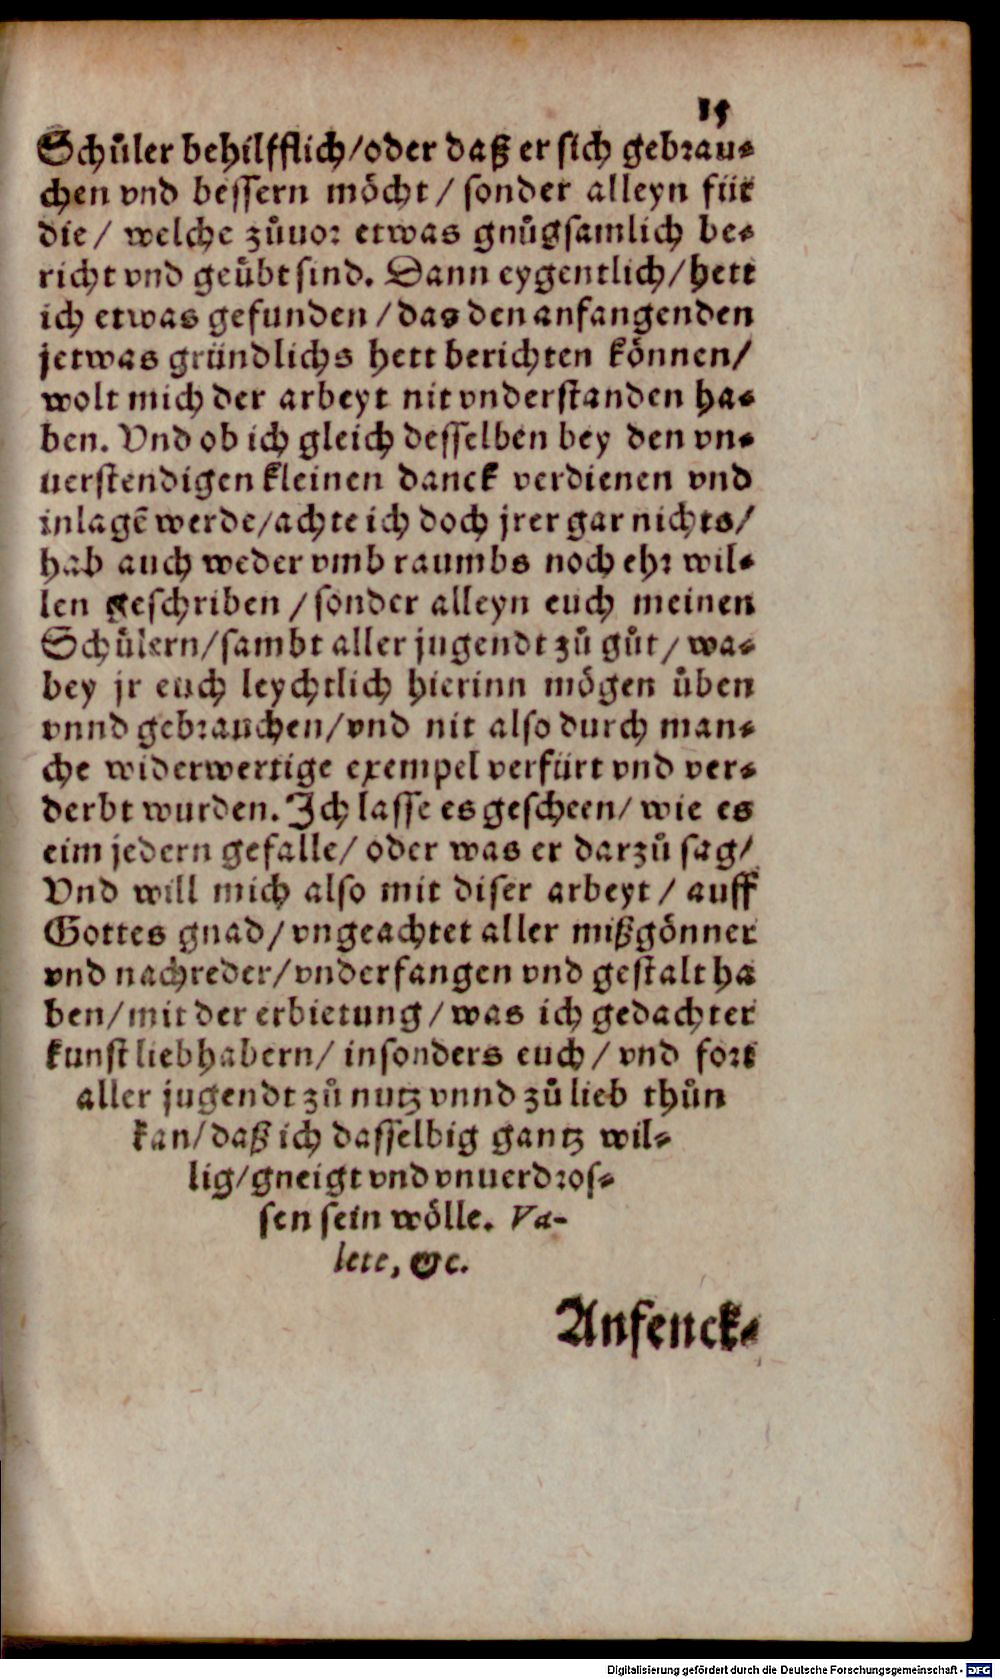 15
Schůler behilfflich/oder daß er sich gebrau-
chen vnd bessern möcht/ sonder alleyn für
die/ welche zůuor etwas gnůgsamlich be-
richt vnd geůbt sind. Dann eygentlich/hett
ich etwas gefunden/das den anfangenden
jetwas gründlichs hett berichten können/
wolt mich der arbeyt nit vnderstanden ha-
ben. Vnd ob ich gleich desselben bey den vn-
uerstendigen kleinen danck verdienen vnd
inlagē werde/achte ich doch jrer gar nichts/
hab auch weder vmb raumbs noch ehr wil-
len geschriben/sonder alleyn euch meinen
Schůlern/sambt aller jugendt zů gůt/ wa-
bey jr euch leychtlich hierinn mögen ůben
vnnd gebrauchen/vnd nit also durch man-
che widerwertige exempel verfürt vnd ver-
derbt wurden. Ich lasse es gescheen/ wie es
eim jedern gefalle/ oder was er darzů sag/
Vnd will mich also mit diser arbeyt/ auff
Gottes gnad/vngeachtet aller mißgönner
vnd nachreder/vnderfangen vnd gestalt ha
ben/mit der erbietung/was ich gedachter
kunst liebhabern/ insonders euch/ vnd fort
aller jugendt zů nutz vnnd zů lieb thůn
kan/daß ich dasselbig gantz wil-
lig/gneigt vnd vnuerdros-
sen sein wölle. Va-
lete, &c.
Anfenck-
Digitalisierung gefördert durch die Deutsche Forschungsgemeinschaft - DFG